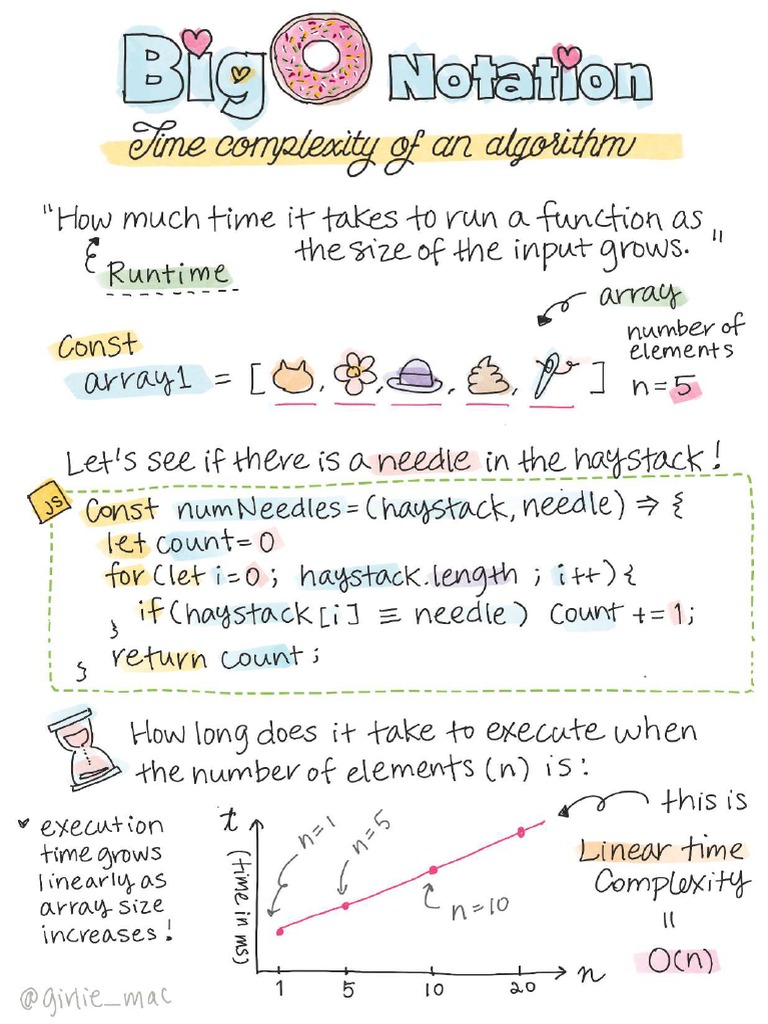 Big O Notation
Time complexity of an algorithm
"How much time it takes to run a function as
the size of the input grows."
Runtime
array
number of
elements
n=5
Const
array1 = [ , , , , ]
Let's see if there is a needle in the haystack!
JS
Const numNeedles = (haystack, needle) => {
let count = 0
for (let i = 0 ; haystack.length ; i++) {
if (haystack [i] ≡ needle) Count += 1;
}
return count ;
}
How long does it take to execute when
the number of elements (n) is:
execution
time grows
linearly as
array size
increases!
t
(time in ms)
n=1
n=5
n=10
1 5 10 20
n
this is
Linear time
Complexity
=
O(n)
@girlie_mac